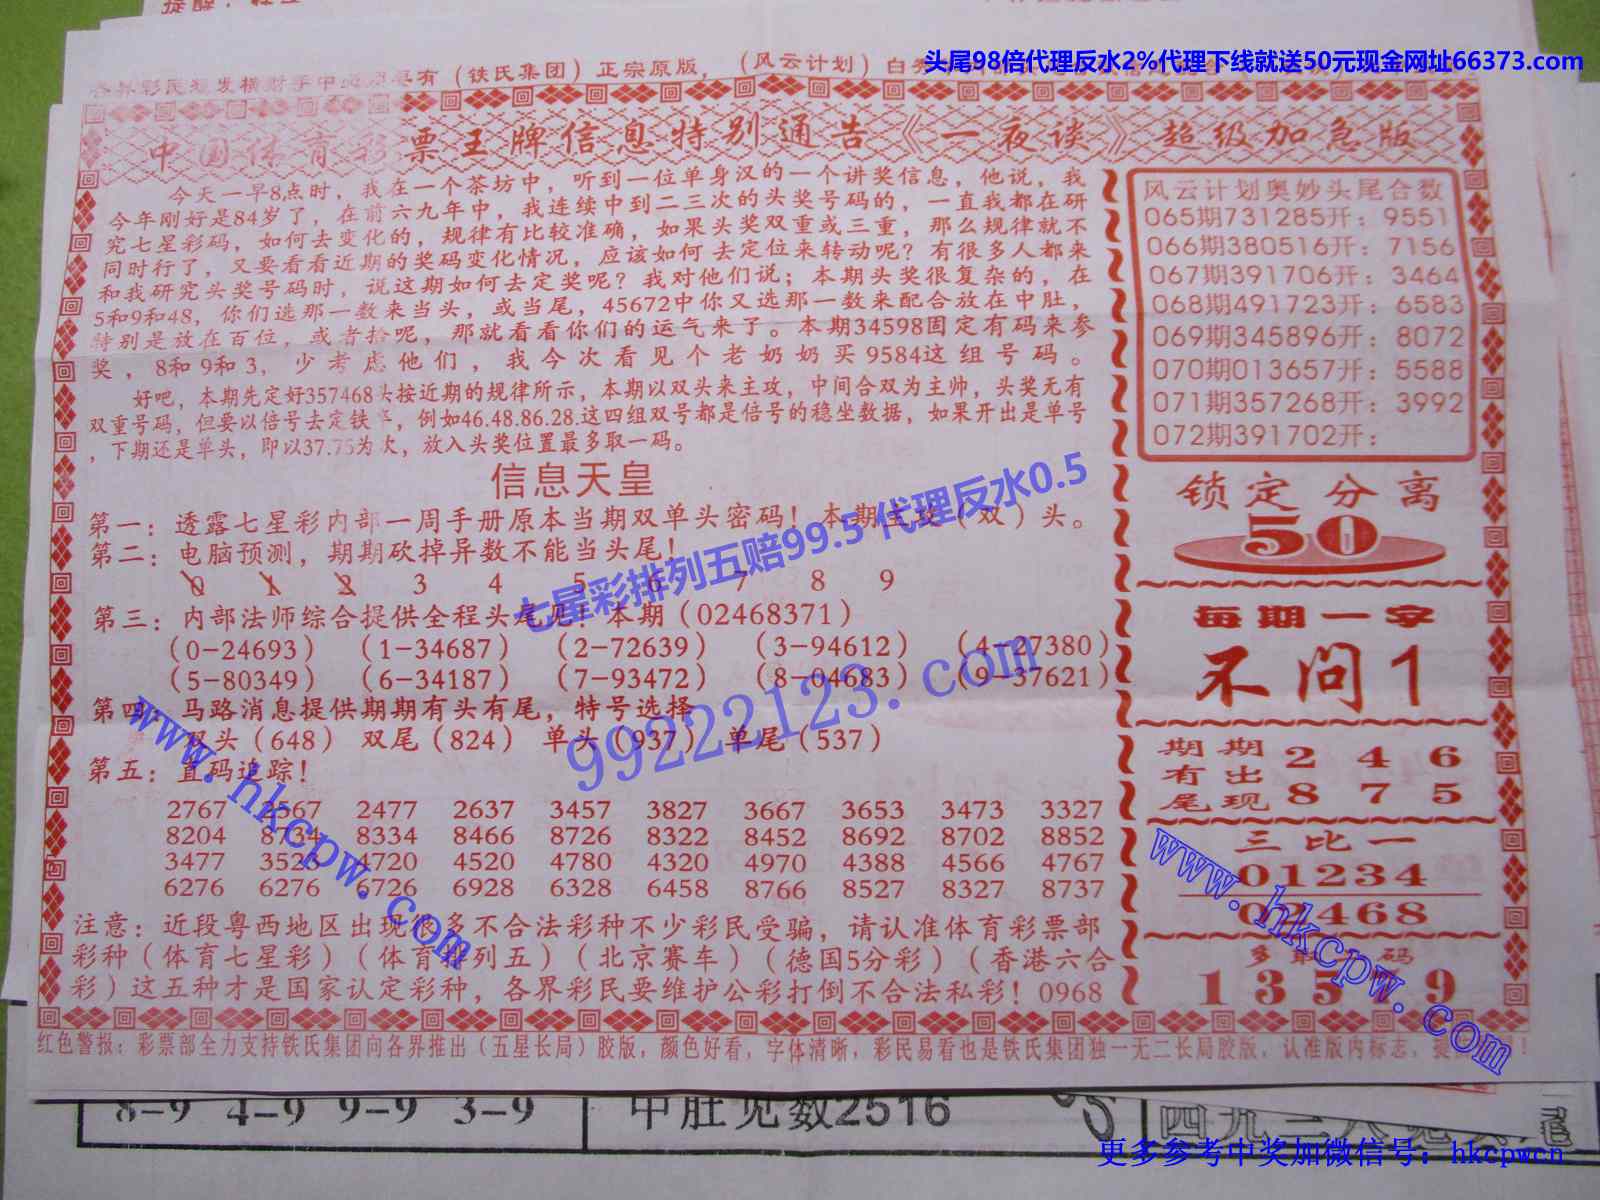 头尾98倍代理反水2%代理下线就送50元现金网址66373.com
各界彩民想发横财手中必须要有（铁氏集团）正宗原版，（风云计划）
中国体育彩票王牌信息特别通告《一夜谈》超级加急版
今天一早8点时，我在一个茶坊中，听到一位单身汉的一个讲奖信息，他说，我
今年刚好是84岁了，在前六九年中，我连续中到二三次的头奖号码的，一直我都在研
究七星彩码，如何去变化的，规律有比较准确，如果头奖双重或三重，那么规律就不
同时行了，又要看看近期的奖码变化情况，应该如何去定位来转动呢？有很多人都来
和我研究头奖号码时，说这期如何去定奖呢？我对他们说；本期头奖很复杂的，在
5和9和48，你们选那一数来当头，或当尾，45672中你又选那一数来配合放在中肚，
特别是放在百位，或者拾呢，那就看看你们的运气来了。本期34598固定有码来参
奖，8和9和3，少考虑他们，我今次看见个老奶奶买9584这组号码。
好吧，本期先定好357468头按近期的规律所示，本期以双头来主攻，中间合双为主帅，头奖无有
双重号码，但要以倍号去定铁率，例如46.48.86.28.这四组双号都是倍号的稳坐数据，如果开出是单号
，下期还是单头，即以37.75为次，放入头奖位置最多取一码。
信息天皇
第一：透露七星彩内部一周手册原本当期双单头密码！本期主攻（双）头。
第二：电脑预测，期期砍掉异数不能当头尾！
0 1 2 3 4 5 6 7 8 9
第三：内部法师综合提供全程头尾见！本期（02468371）
（0-24693）（1-34687）（2-72639）（3-94612）（4-27380）
（5-80349）（6-34187）（7-93472）（8-04683）（9-37621）
第四：马路消息提供期期有头有尾，特号选择
双头（648）双尾（824）单头（937）单尾（537）
第五：直码追踪！
2767 2567 2477 2637 3457 3827 3667 3653 3473 3327
8204 8734 8334 8466 8726 8322 8452 8692 8702 8852
3477 3528 4720 4520 4780 4320 4970 4388 4566 4767
6276 6276 6726 6928 6328 6458 8766 8527 8327 8737
注意：近段粤西地区出现很多不合法彩种不少彩民受骗，请认准体育彩票部
彩种（体育七星彩）（体育排列五）（北京赛车）（德国5分彩）（香港六合
彩）这五种才是国家认定彩种，各界彩民要维护公彩打倒不合法私彩！0968
风云计划奥妙头尾合数
065期731285开：9551
066期380516开：7156
067期391706开：3464
068期491723开：6583
069期345896开：8072
070期013657开：5588
071期357268开：3992
072期391702开：
锁定分离
50
每期一字
不问1
期期有出尾现
2 4 6
8 7 5
三比一
01234
02468
码
1 3 5 9
红色警报：彩票部全力支持铁氏集团向各界推出（五星长局）胶版，颜色好看，字体清晰，彩民易看也是铁氏集团独一无二长局胶版，认准版内标志，
七星彩排列五赔99.5 代理反水0.5
99222123.com
www.hkcpw.com
www.hkcpw.com
8-9 4-9 9-9 3-9
中肚见数2516
更多参考中奖加微信号：hkcpwcn